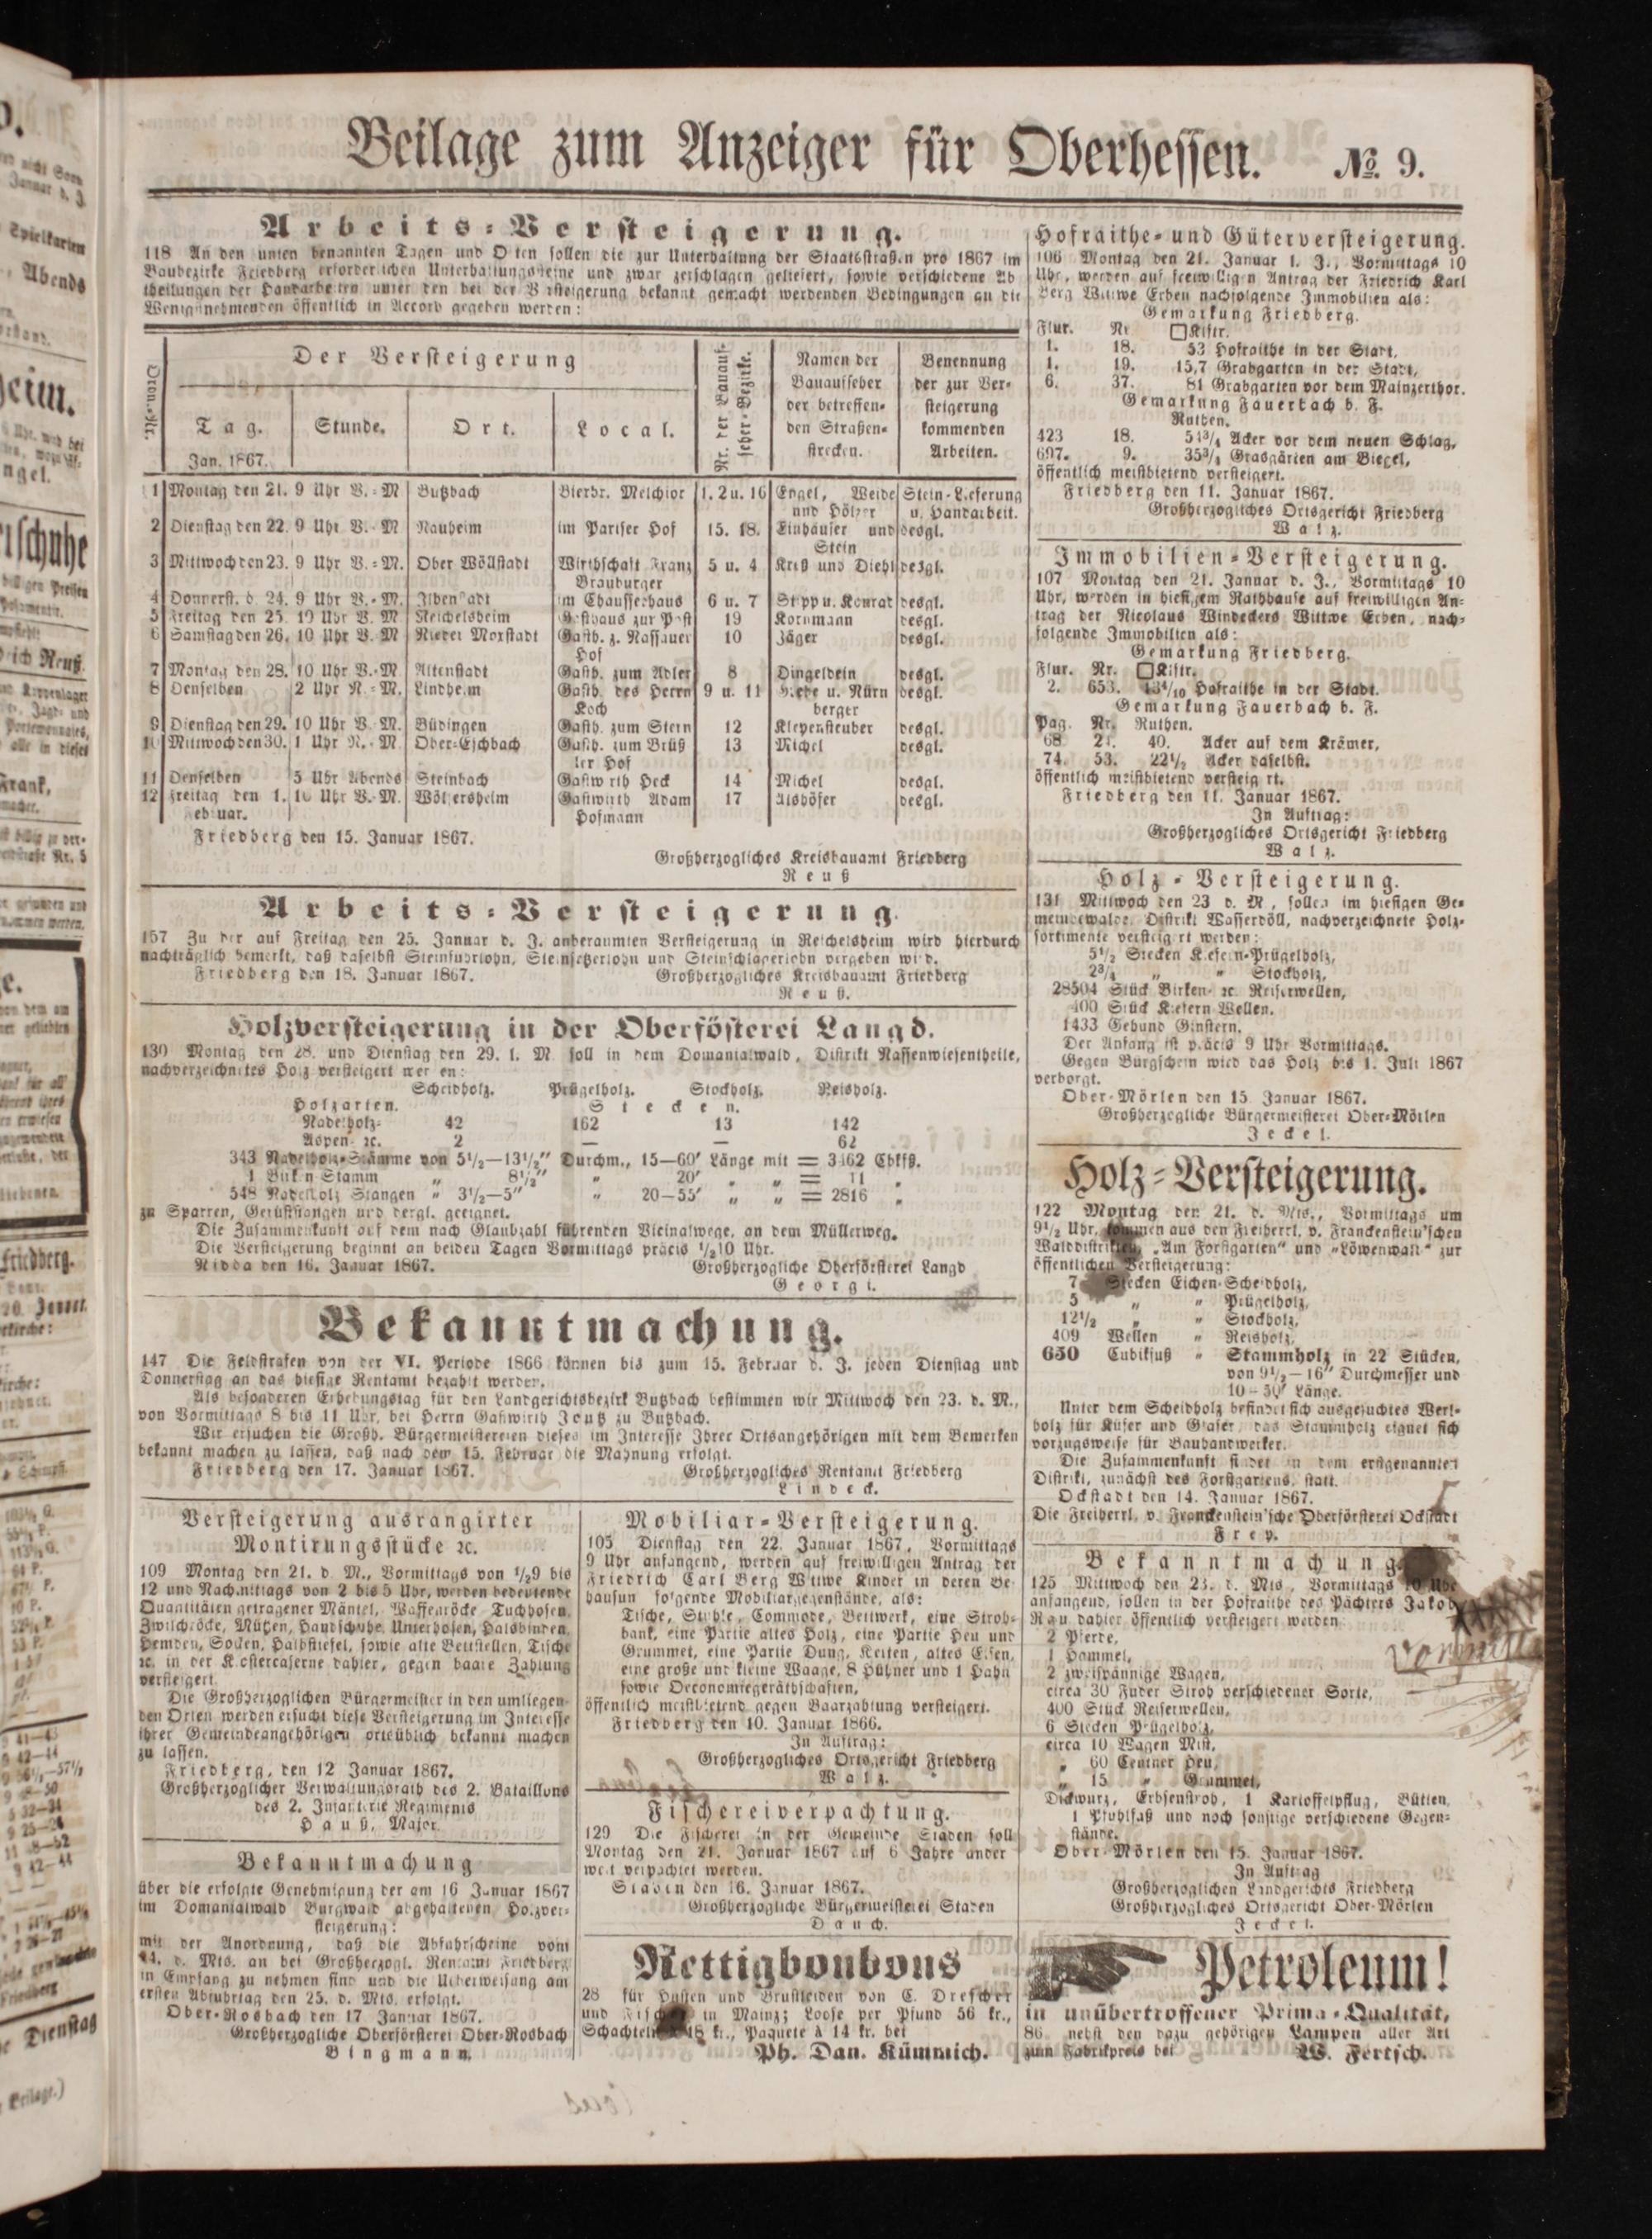 Beilage zum Anzeiger für Oberhessen. №. 9.
Arbeits-Versteigerung.
118 An den unten benannten Tagen und Orten sollen die zur Unterhaltung der Staatsstraßen pro 1867 im
Baubezirke Friedberg erforderlichen Unterhaltungssteine und zwar zerschlagen geliefert, sowie verschiedene Ab
theilungen der Handarbeiten unter den bei der Versteigerung bekannt gemacht werdenden Bedingungen an die
Wenigstnehmenden öffentlich in Accord gegeben werden:
Ordn.-Nr. Der Versteigerung Nr. der Bauauf-seher-Bezirke. Namen der Bauaufseher der betreffen-den Straßen-strecken. Benennung der zur Ver-steigerung kommenden Arbeiten.
Tag. Jan. 1867. Stunde. Ort. Local.
1 Montag den 21. 9 Uhr V.-M Butzbach Bierbr. Melchior 1. 2 u. 16 Engel, Weide Stein-Lieferung
und Hölzer u. Handarbeit.
2 Dienstag den 22. 9 Uhr V.-M Nauheim im Pariser Hof 15. 18. Einhäuser und desgl.
Stein
3 Mittwoch den 23. 9 Uhr V.-M. Ober Wöllstadt Wirthschaft Franz 5 u. 4 Kreß und Diehl desgl.
Brauburger
4 Donnerst. d. 24. 9 Uhr V.-M. Ilbenstadt im Chausseehaus 6 u. 7 Stipp u. Konrad desgl.
5 Freitag den 25. 10 Uhr V. M Reichelsheim Gasthaus zur Post 19 Kornmann desgl.
6 Samstag den 26. 10 Uhr V.-M Nieder Morstadt Gasth. z. Nassauer 10 Jäger desgl.
Hof
7 Montag den 28. 10 Uhr V.-M Altenstadt Gasth. zum Adler 8 Dingeldein desgl.
8 Denselben 2 Uhr N.-M. Lindheim Gasth. des Herrn 9 u. 11 u. Nürn desgl.
Koch berger
9 Dienstag den 29. 10 Uhr V.-M. Büdingen Gasth. zum Stern 12 Klepensteuber desgl.
10 Mittwoch den 30. 1 Uhr N.-M. Ober-Eschbach Gasth. zum Brüß 13 Michel desgl.
ler Hof
11 Denselben 5 Uhr Abends Steinbach Gastwirth Heck 14 Michel desgl.
12 Freitag den 1. 10 Uhr V.-M. Wölfersheim Gastwirth Adam 17 Alshöfer desgl.
Februar. Hofmann
Friedberg den 15. Januar 1867.
Großherzogliches Kreisbauamt Friedberg
Reuß
Arbeits-Versteigerung.
157 Zu der auf Freitag den 25. Januar d. J. anberaumten Versteigerung in Reichelsheim wird hierdurch
nachträglich bemerkt, daß daselbst Steinfuhrlohn, Steinsetzerlohn und Steinschlägerlohn vergeben wird.
Friedberg den 18. Januar 1867. Großherzogliches Kreisbauamt Friedberg
Reuß.
Holzversteigerung in der Oberfösterei Langd.
130 Montag den 28. und Dienstag den 29. l. M soll in dem Domanialwald, Distrikt Nassenwiesentheile,
nachverzeichnetes Holz versteigert werden:
Scheidholz. Prügelholz. Stockholz. Reisholz.
Holzarten. Stecken.
Nadelholz- 42 162 13 142
Aspen- ꝛc. 2 — — 62
343 Nadelholz-Stämme von 5½—13½" Durchm., 15—60' Länge mit = 3462 Cbkfß.
1 Birken Stamm „ 8½" „ 20' „ „ = 11 „
548 Nadelholz Stangen „ 3½—5" „ 20—55' „ „ = 2816 „
zu Sparren, Gerüststangen und dergl. geeignet.
Die Zusammenkunft auf dem nach Glaubzahl führenden Vicinalwege, an dem Müllerweg.
Die Versteigerung beginnt an beiden Tagen Vormittags präcis ½10 Uhr.
Nidda den 16. Januar 1867. Großherzogliche Oberförsterei Langd
Georgi.
Bekanntmachung.
147 Die Feldstrafen von der VI. Periode 1866 können bis zum 15. Februar d. J. jeden Dienstag und
Donnerstag an das hiesige Rentamt bezahlt werden.
Als besonderen Erhebungstag für den Landgerichtsbezirk Butzbach bestimmen wir Mittwoch den 23. d. M.,
von Vormittags 8 bis 11 Uhr, bei Herrn Gastwirth Joutz zu Butzbach.
Wir ersuchen die Großh. Bürgermeistereien dieses im Interesse Ihrer Ortsangehörigen mit dem Bemerken
bekannt machen zu lassen, daß nach dem 15. Februar die Mahnung erfolgt.
Friedberg den 17. Januar 1867. Großherzogliches Rentamt Friedberg
Lindeck.
Versteigerung ausrangirter
Montirungsstücke ꝛc.
109 Montag den 21. d. M., Vormittags von ½9 bis
12 und Nachmittags von 2 bis 5 Uhr, werden bedeutende
Quantitäten getragener Mäntel, Waffenröcke, Tuchhosen,
Zwilchröcke, Mützen, Handschuhe, Unterhosen, Halsbinden,
Hemden, Socken, Halbstiefel, sowie alte Bettstellen, Tische
ꝛc. in der Klostercaserne dahier, gegen baare Zahlung
versteigert.
Die Großherzoglichen Bürgermeister in den umliegen-
den Orten werden ersucht diese Versteigerung im Interesse
ihrer Gemeindeangehörigen ortsüblich bekannt machen
zu lassen.
Friedberg, den 12 Januar 1867.
Großherzoglicher Verwaltungsrath des 2. Bataillons
des 2. Infanterie Regiments
Hauß, Major.
Bekanntmachung
über die erfolgte Genehmigung der am 16 Januar 1867
im Domanialwald Burgwald abgehaltenen Holzver-
steigerung:
mit der Anordnung, daß die Abfahrscheine vom
24. d. Mts. an bei Großherzogl. Rentamt Friedberg
in Empfang zu nehmen sind und die Ueberweisung am
ersten Abfuhrtag den 25. d. Mts. erfolgt.
Ober-Rosbach den 17 Januar 1867.
Großherzogliche Oberförsterei Ober-Rosbach
Bingmann.
Mobiliar-Versteigerung.
105 Dienstag den 22. Januar 1867, Vormittags
9 Uhr anfangend, werden auf freiwilligen Antrag der
Friedrich Carl Berg Wittwe Kinder in deren Be
hausun folgende Mobiliargegenstände, als:
Tische, Stühle, Commode, Bettwerk, eine Stroh-
bank, eine Partie altes Holz, eine Partie Heu und
Grummet, eine Partie Dung, Ketten, altes Eisen,
eine große und kleine Waage, 8 Hühner und 1 Hahn
sowie Oeconomiegeräthschaften,
öffentlich meistbietend gegen Baarzahlung versteigert.
Friedberg den 10. Januar 1866.
In Auftrag:
Großherzogliches Ortsgericht Friedberg
Walz.
Fischereiverpachtung.
129 Die Fischerei in der Gemeinde Staden soll
Montag den 21. Januar 1867 auf 6 Jahre ander
weit verpachtet werden.
Staden den 16. Januar 1867.
Großherzogliche Bürgermeisterei Staden
Dauch.
Rettigbonbons
28 für Husten und Brustleiden von C. Drescher
und Fischer in Mainz; Loose per Pfund 56 kr.,
Schachteln 18 kr., Paquete à 14 kr. bei
Ph. Dan. Kümmich.
Hofraithe- und Güterversteigerung.
106 Montag den 21. Januar l. J., Vormittags 10
Uhr, werden auf freiwilligen Antrag der Friedrich Karl
Berg Wittwe Erben nachfolgende Immobilien als:
Gemarkung Friedberg.
Flur. Nr □Klftr.
1. 18. 53 Hofraithe in der Stadt,
1. 19. 15,7 Grabgarten in der Stadt,
6. 37. 81 Grabgarten vor dem Mainzerthor.
Gemarkung Fauerbach b. F.
Ruthen.
423 18. 51¾ Acker vor dem neuen Schlag,
697. 9. 35¾ Grasgärten am Biegel,
öffentlich meistbietend versteigert.
Friedberg den 11. Januar 1867.
Großherzogliches Ortsgericht Friedberg
Walz.
Immobilien-Versteigerung.
107 Montag den 21. Januar d. J., Vormittags 10
Uhr, werden in hiesigem Rathhause auf freiwilligen An-
trag der Nicolaus Windeckers Wittwe Erben, nach-
folgende Immobilien als:
Gemarkung Friedberg.
Flur. Nr. □Klftr.
2. 653. 43 4/10 Hofraithe in der Stadt.
Gemarkung Fauerbach b. F.
Pag. Nr. Ruthen.
68 21. 40. Acker auf dem Krämer,
74. 53. 22½ Acker daselbst.
öffentlich meistbietend versteigert.
Friedberg den 11. Januar 1867.
In Auftrag:
Großherzogliches Ortsgericht Friedberg
Walz.
Holz-Versteigerung.
131 Mittwoch den 23 d. M, sollen im hiesigen Ge-
meindewalde, Distrikt Wasserdöll, nachverzeichnete Holz-
sortimente versteigert werden:
5½ Stecken Kiefern-Prügelholz,
2¾ „ „ Stockholz,
28504 Stück Birken- ꝛc. Reiserwellen,
400 Stück Kiefern Wellen.
1433 Gebund Ginstern.
Der Anfang ist präcis 9 Uhr Vormittags.
Gegen Bürgschein wird das Holz bis 1. Juli 1867
verborgt.
Ober-Mörlen den 15 Januar 1867.
Großherzogliche Bürgermeisterei Ober-Mörlen
Jeckel.
Holz-Versteigerung.
122 Montag den 21. d. Mts., Vormittags um
9½ Uhr, kommen aus den Freiherrl. v. Franckenstein'schen
Walddistrikten, „Am Forstgarten“ und „Löwenwald“ zur
öffentlichen Versteigerung:
7 Stecken Eichen-Scheidholz,
5 „ „ Prügelholz,
12½ „ „ Stockholz,
409 Wellen „ Reisholz,
650 Cubikfuß „ Stammholz in 22 Stücken,
von 9½—16" Durchmesser und
10—50' Länge.
Unter dem Scheidholz befindet sich ausgesuchtes Werk-
holz für Küfer und Glaser, das Stammholz eignet sich
vorzugsweise für Bauhandwerker.
Die Zusammenkunft findet in dem erstgenannten
Distrikt, zunächst des Forstgartens, statt.
Ockstadt den 14. Januar 1867.
Die Freiherrl. v. Franckenstein'sche Oberförsterei Ockstadt
Frey.
Bekanntmachung
125 Mittwoch den 23. d. Mts, Vormittags 10 Uhr
anfangend, sollen in der Hofraithe des Pächters Jakob
Rau dahier öffentlich versteigert werden:
2 Pferde,
1 Hammel,
2 zweispännige Wagen,
circa 30 Fuder Stroh verschiedener Sorte,
400 Stück Reiserwellen,
6 Stecken Prügelholz,
circa 10 Wagen Mist,
„ 60 Centner Heu,
„ 15 „ Grummet,
Dickwurz, Erbsenstroh, 1 Kartoffelpflug, Bütten,
1 Pfuhlfaß und noch sonstige verschiedene Gegen-
stände.
Ober-Mörlen den 15. Januar 1867.
In Auftrag
Großherzoglichen Landgerichts Friedberg
Großherzogliches Ortsgericht Ober-Mörlen
Jeckel.
Petroleum!
in unübertroffener Prima-Qualität,
86 nebst den dazu gehörigen Lampen aller Art
zum Fabrikpreis bei W. Fertsch.